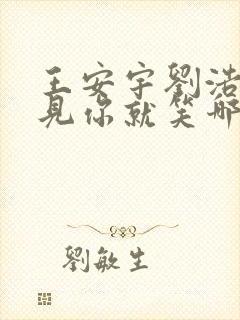 王安宇劉浩
見你就笑哪
劉敏生